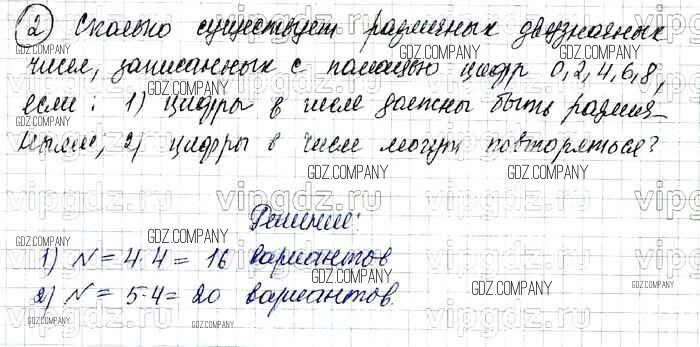 2 Сколько существует различных двузначных
чисел, записанных с помощью цифр 0,2,4,6,8,
если: 1) цифры в числе должны быть различ-
ными; 2) цифры в числе могут повторяться?
Решение:
1) N = 4·4 = 16 вариантов
2) N = 5·4 = 20 вариантов.
GDZ.COMPANY
vipgdz.ru